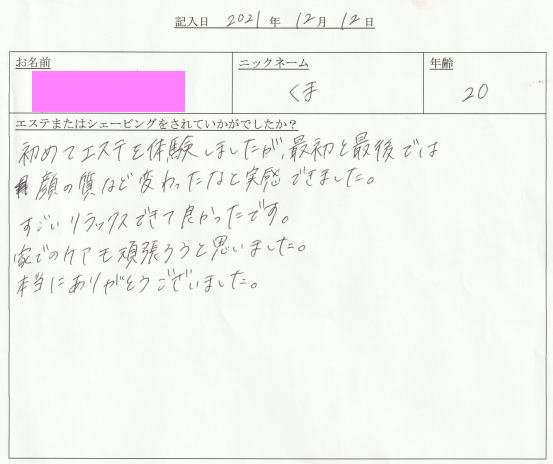 記入日 2021年 12月 12日
お名前
ニックネーム
くま
年齢
20
エステまたはシェービングをされていかがでしたか？
初めてエステを体験しましたが、最初と最後では
顔の質など変わったなと実感できました。
すごいリラックスできて良かったです。
家でのケアも頑張ろうと思いました。
本当にありがとうございました。